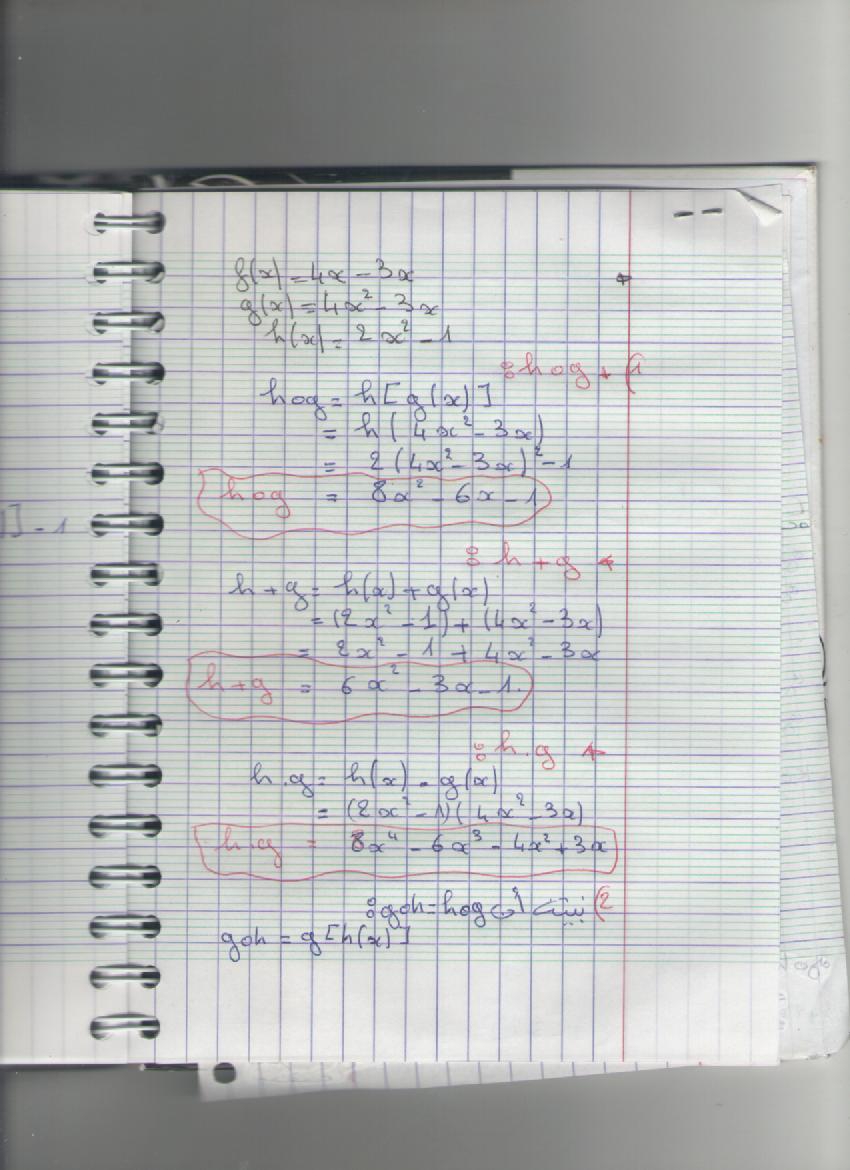 f(x) = 4x - 3x
g(x) = 4x² - 3x
h(x) = 2x² - 1
1) * hog :
hog = h[g(x)]
= h(4x² - 3x)
= 2(4x² - 3x)² - 1
hog = 8x² - 6x - 1
* h + g :
h + g = h(x) + g(x)
= (2x² - 1) + (4x² - 3x)
= 2x² - 1 + 4x² - 3x
h + g = 6x² - 3x - 1.
* h.g :
h.g = h(x) . g(x)
= (2x² - 1)(4x² - 3x)
h.g = 8x⁴ - 6x³ - 4x² + 3x
2) أن goh = hog :
goh = g[h(x)]
]] - 1